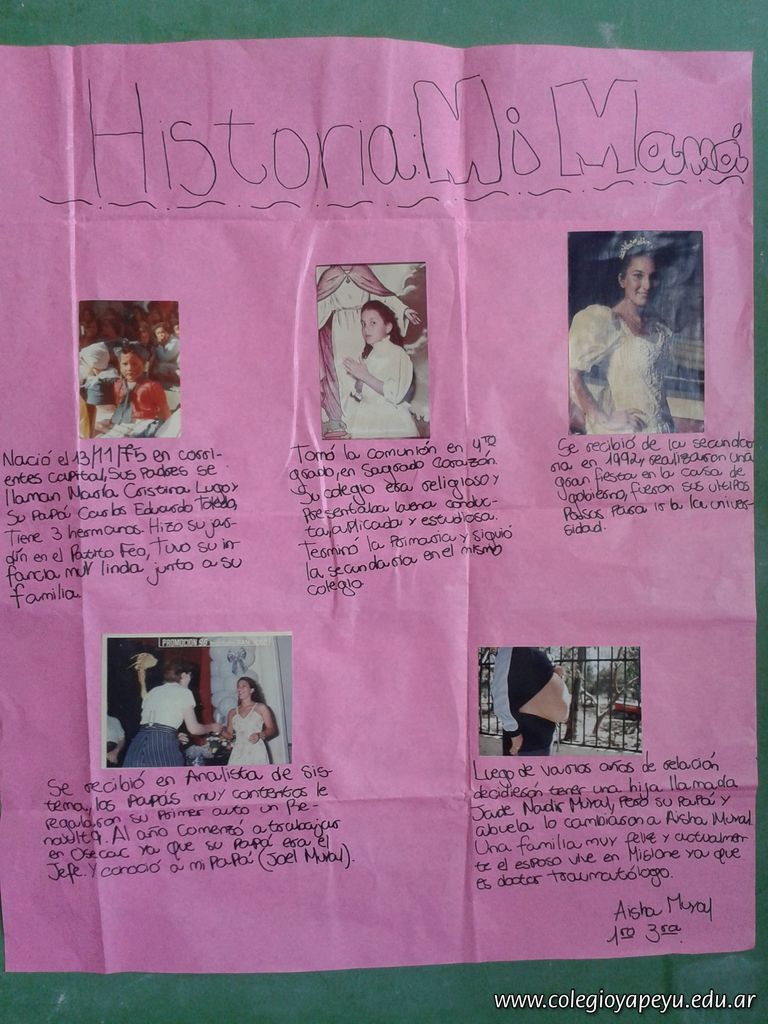 Historia Mi Mamá
Nació el 13/11/75 en corri-
entes capital, Sus Padres se
llaman María Cristina Lugo y
Su Papá Carlos Eduardo Toledo,
Tiene 3 hermanos. Hizo su jar-
dín en el Patito Feo, Tuvo su in-
fancia muy linda junto a su
familia.
Tomó la comunión en 4to
grado, en Sagrado Corazón.
Su colegio era religioso y
Presentaba buena conduc-
ta, aplicada y estudiosa.
Terminó la Primaria y siguió
la secundaria en el mismo
colegio.
Se recibió de la secunda
ria en 1992, realizaron una
gran fiesta en la casa de
gobierno, fueron sus ultimos
Pasos Para ir a la univer-
sidad.
PROMOCION 96
Se recibió en Analista de Sis-
tema, los Papás muy contentos le
regalaron su Primer auto un Re-
nault 9. Al año comenzó a trabajar
en Osecac ya que su Papá era el
Jefe. Y conoció a mi Papá (Joel Muval).
Luego de varios años de relación
decidieron tener una hija llamada
Jade Nadir Muval, Pero su Papá y
abuela lo cambiaron a Aisha Muval
Una familia muy feliz y actualmen-
te el esposo vive en Misione ya que
es doctor traumatólogo.
Aisha Muval
1ro 3ra
www.colegioyapeyu.edu.ar